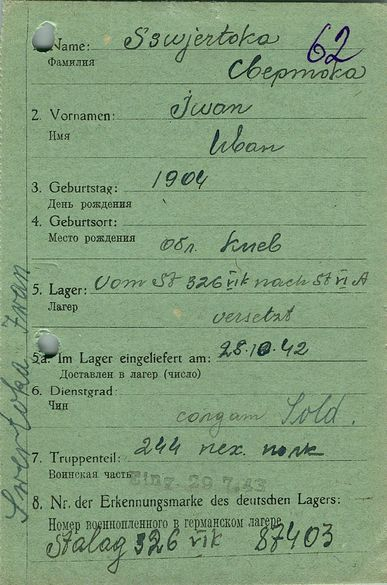 1. Name: Sswjertoka 62
Фамилия
Свертока
2. Vornamen: Iwan
Имя
Иван
3. Geburtstag: 1904
День рождения
4. Geburtsort:
Место рождения
обл. Киев
5. Lager: Vom St 326 VI k nach St VI A
Лагер
versetzt
5a. Im Lager eingeliefert am: 28.10.42
Доставлен в лагер (число)
6. Dienstgrad
Чин
солдат Sold.
7. Truppenteil: 244 пех. полк
Воинская часть
Eing. 29.7.43
8. Nr. der Erkennungsmarke des deutschen Lagers:
Номер военнопленного в германском лагере
Stalag 326 VI k 87403
Swertoka Iwan